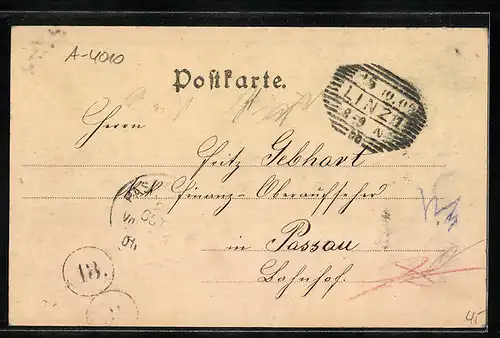 A-4010
Postkarte.
LINZ
8-9 N
Herrn
Fritz Gebhart
k.k. Finanz-Oberaufseher
in Passau
Bahnhof.
13.
45